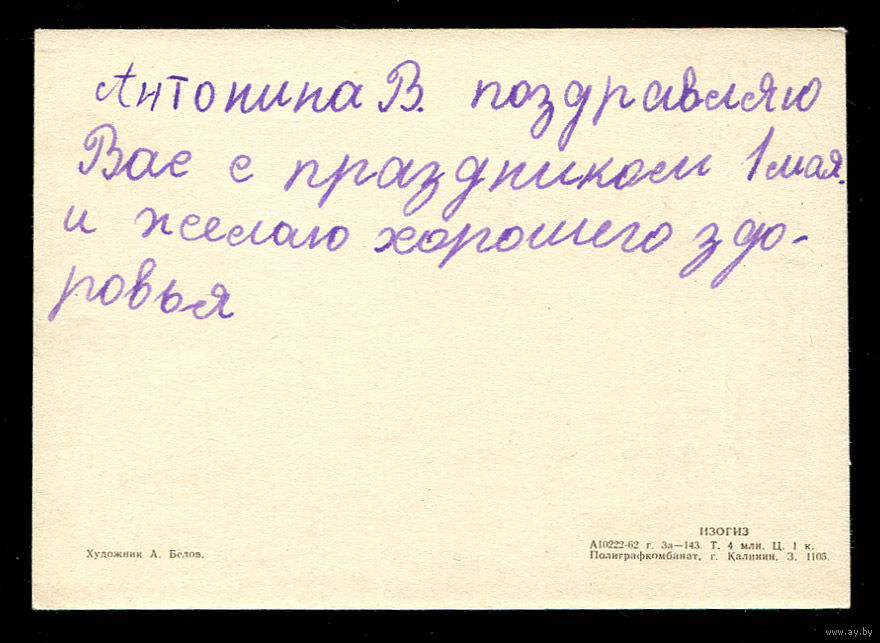 Антонина В. поздравляю
Вас с праздником 1 мая.
и желаю хорошего здо-
ровья
ИЗОГИЗ
Художник А. Белов.
А10222-62 г. За—143. Т. 4 млн. Ц. 1 к.
Полиграфкомбинат, г. Калинин. З. 1105.
www.ay.by